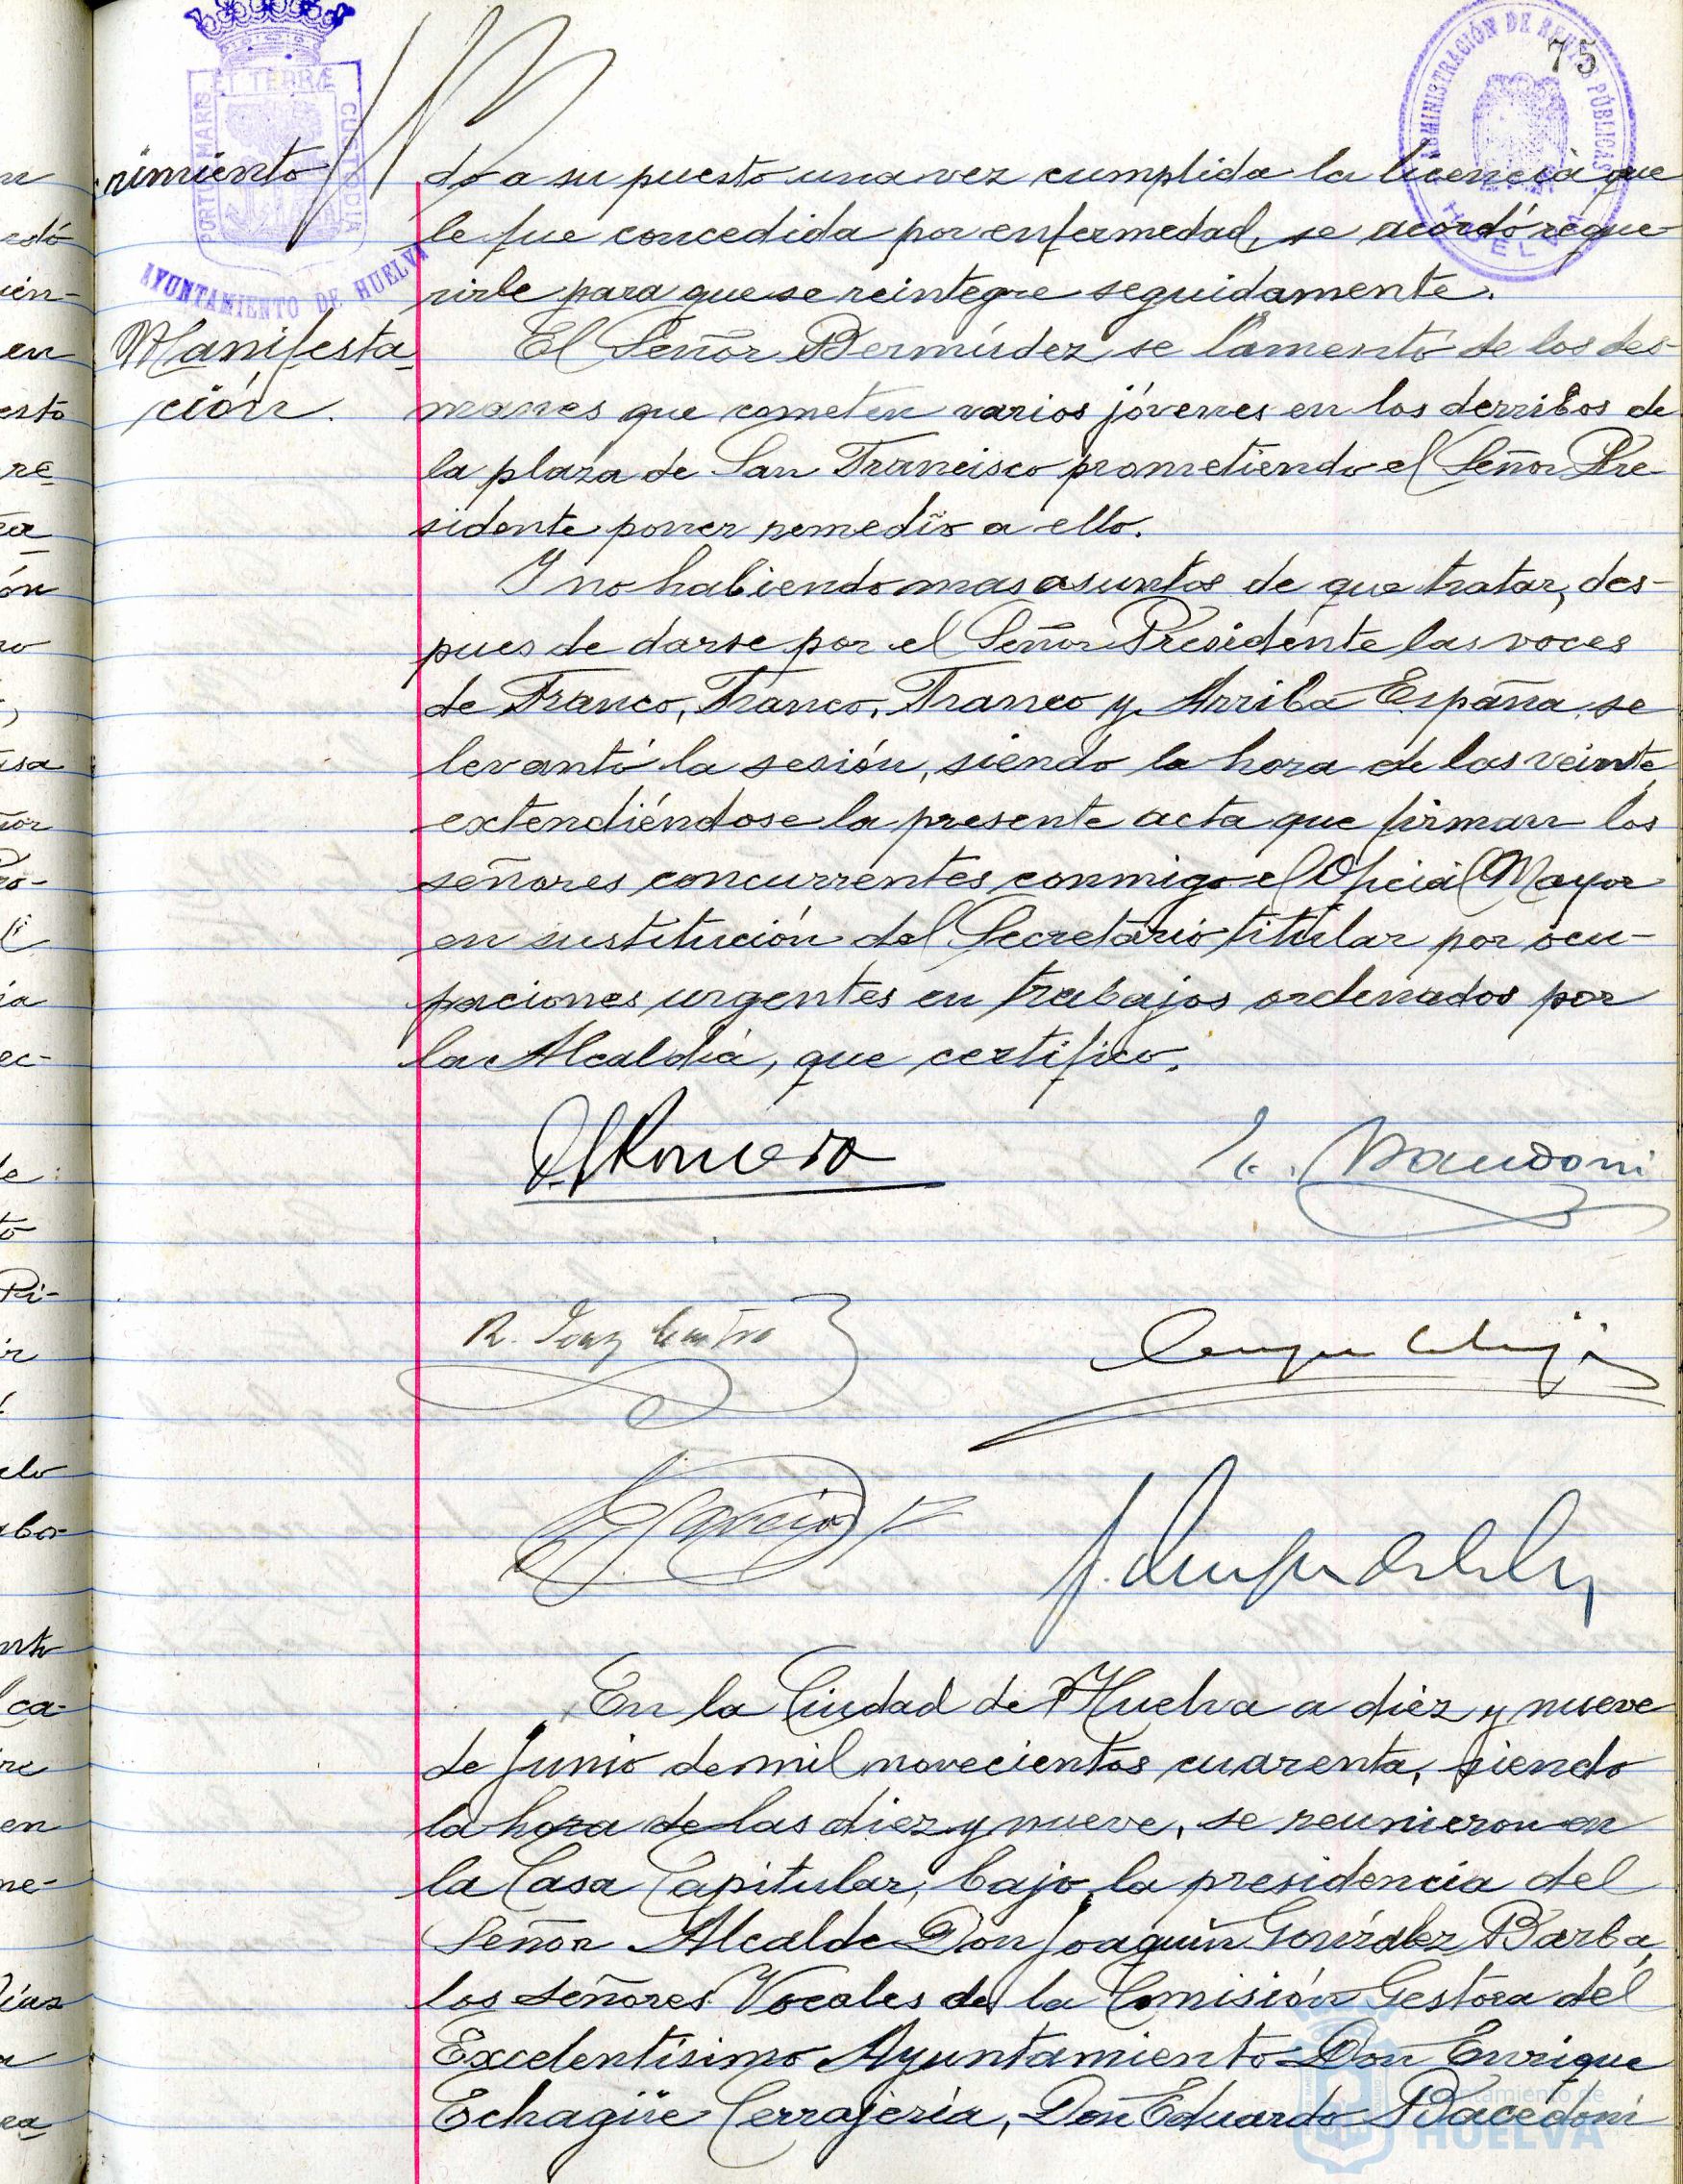 75
PORTUS MARIS ET TERRÆ CUSTODIA
AYUNTAMIENTO DE HUELVA
ADMINISTRACIÓN DE PÚBLICAS
HUELVA
rimiento
do a su puesto una vez cumplida la licencia que
le fue concedida por enfermedad, se acordó reque-
rirle para que se reintegre seguidamente.
Manifesta-
ción.
El Señor Bermúdez se lamentó de los des-
manes que cometen varios jóvenes en los derribos de
la plaza de San Francisco prometiendo el Señor Pre-
sidente poner remedio a ello.
Y no habiendo mas asuntos de que tratar, des-
pues de darse por el Señor Presidente las voces
de Franco, Franco, Franco y Arriba España, se
levantó la sesión, siendo la hora de las veinte,
extendiéndose la presente acta que firman los
señores concurrentes conmigo el Oficial Mayor
en sustitución del Secretario titular por ocu-
paciones urgentes en trabajos ordenados por
la Alcaldía, que certifico.
Romero
R.
García
En la Ciudad de Huelva a diez y nueve
de Junio de mil novecientos cuarenta, siendo
la hora de las diez y nueve, se reunieron en
la Casa Capitular, bajo la presidencia del
Señor Alcalde Don Joaquín González Barba,
los señores Vocales de la Comisión Gestora del
Excelentísimo Ayuntamiento Don Enrique
Echagüe Cerrajería, Don Eduardo Bacedoni
Ayuntamiento de
HUELVA